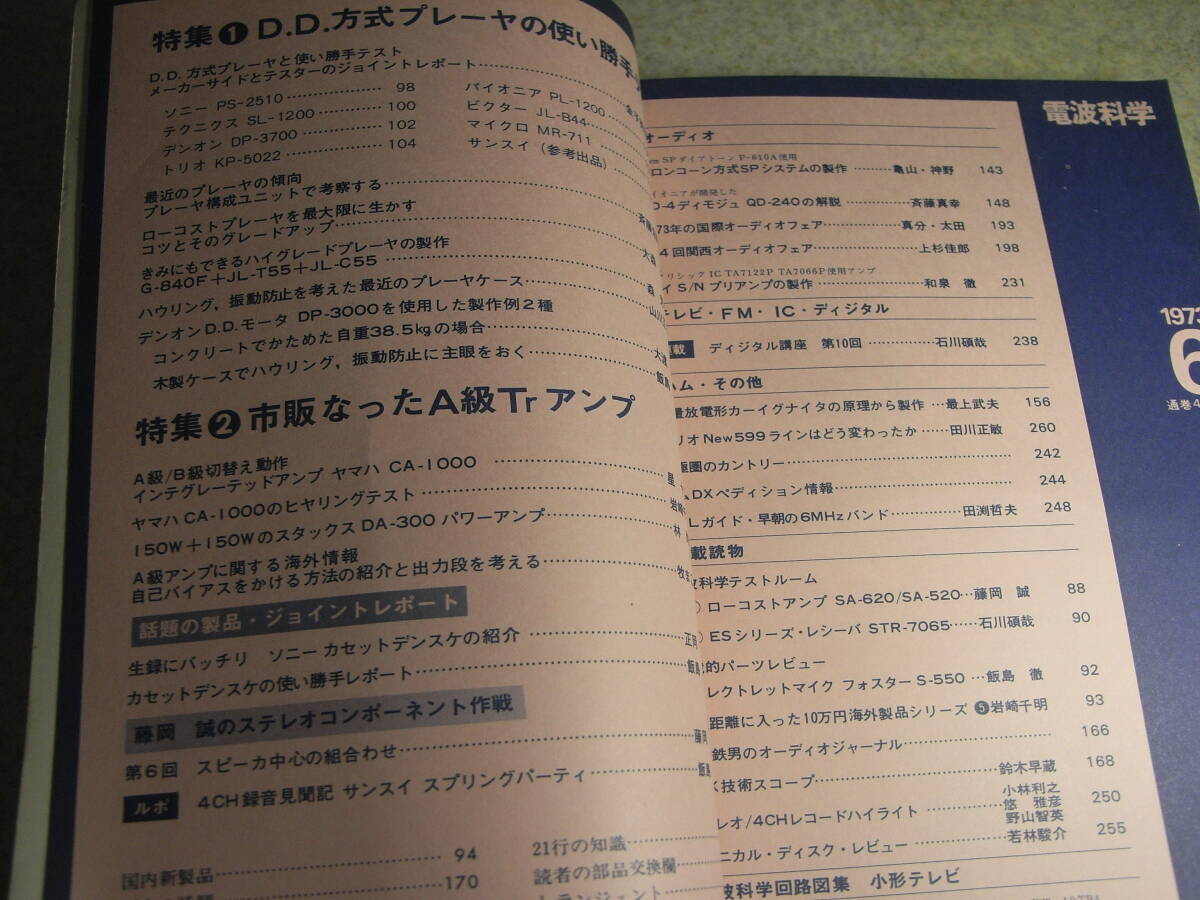 特集❶D.D.方式プレーヤの使い勝手
D.D.方式プレーヤと使い勝手テスト
メーカーサイドとテスターのジョイントレポート
ソニー PS-2510 98
テクニクス SL-1200 100
デンオン DP-3700 102
トリオ KP-5022 104
パイオニア PL-1200
ビクター JL-B44
マイクロ MR-711
サンスイ (参考出品)
最近のプレーヤの傾向
プレーヤ構成ユニットで考察する
ローコストプレーヤを最大限に生かす
コツとそのグレードアップ
きみにもできるハイグレードプレーヤの製作
G-840F+JL-T55+JL-C55
ハウリング,振動防止を考えた最近のプレーヤケース
デンオンD.D.モータ DP-3000を使用した製作例2種
コンクリートでかためた自重38.5kgの場合
木製ケースでハウリング,振動防止に主眼をおく
特集❷市販なったA級Trアンプ
A級/B級切替え動作
インテグレーテッドアンプ ヤマハ CA-1000 星
ヤマハCA-1000のヒヤリングテスト 岩崎
150W+150WのスタックスDA-300 パワーアンプ 林
A級アンプに関する海外情報
自己バイアスをかける方法の紹介と出力段を考える 牧
話題の製品・ジョイントレポート
生録にバッチリ ソニー カセットデンスケの紹介 正岡
カセットデンスケの使い勝手レポート 飯島
藤岡 誠のステレオコンポーネント作戦
第6回 スピーカ中心の組合わせ 藤岡
ルポ 4CH録音見聞記 サンスイ スプリングパーティ 飯島
国内新製品 94
170
21行の知識
読者の部品交換欄
トランジェント
電波科学
1973
6
通巻4
オーディオ
SPダイアトーン P-610A使用
ロンコーン方式SPシステムの製作 亀山・神野 143
イオニアが開発した
D-4ディモジュ QD-240の解説 斉藤真幸 148
73年の国際オーディオフェア 真分・太田 193
4回関西オーディオフェア 上杉佳郎 198
リシックIC TA7122P TA7066P使用アンプ
イS/Nプリアンプの製作 和泉 徹 231
テレビ・FM・IC・ディジタル
載 ディジタル講座 第10回 石川碩哉 238
ハム・その他
量放電形カーイグナイタの原理から製作 最上武夫 156
リオNew599ラインはどう変わったか 田川正敏 260
圏のカントリー 242
DXペディション情報 244
Lガイド・早朝の6MHzバンド 田渕哲夫 248
載読物
科学テストルーム
ローコストアンプ SA-620/SA-520 藤岡 誠 88
ESシリーズ・レシーバ STR-7065 石川碩哉 90
的パーツレビュー
レクトレットマイク フォスターS-550 飯島 徹 92
距離に入った10万円海外製品シリーズ ❺岩崎千明 93
鉄男のオーディオジャーナル 166
技術スコープ 鈴木早蔵 168
レオ/4CHレコードハイライト 小林利之 悠 雅彦 野山智英 250
ニカル・ディスク・レビュー 若林駿介 255
波科学回路図集 小形テレビ